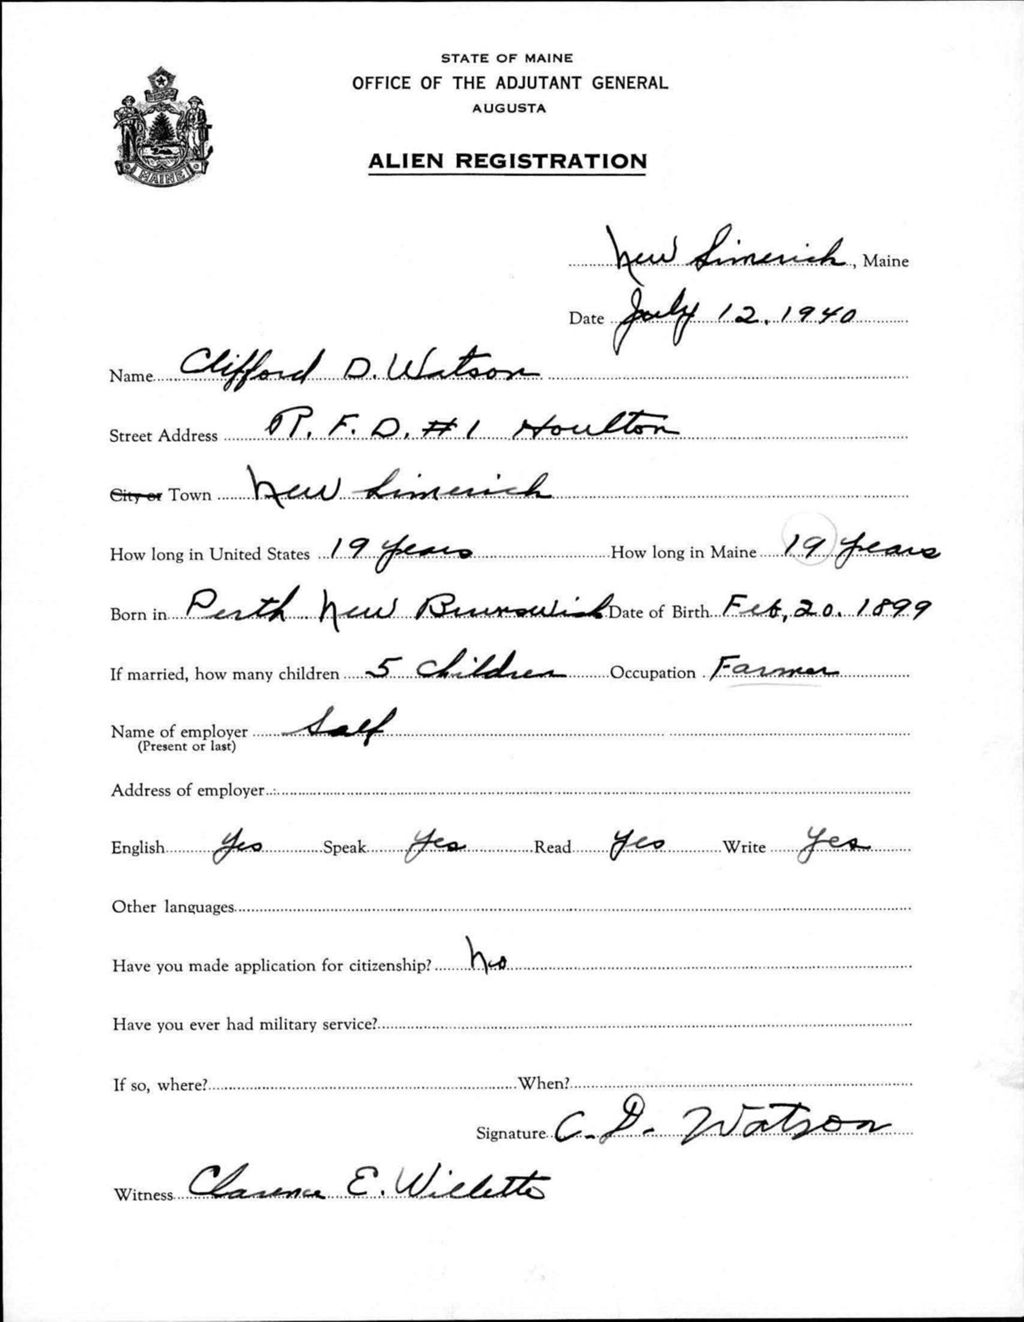 STATE OF MAINE
OFFICE OF THE ADJUTANT GENERAL
AUGUSTA
MAINE
ALIEN REGISTRATION
New Limerick, Maine
Date July 12, 1940
Name Clifford D. Watson
Street Address R. F. D. #1 Houlton
City or Town New Limerick
How long in United States 19 years How long in Maine 19 years
Born in Perth New Brunswick Date of Birth Feb, 20. 1899
If married, how many children 5 children Occupation Farmer
Name of employer Self
(Present or last)
Address of employer
English Yes Speak Yes Read Yes Write Yes
Other languages
Have you made application for citizenship? No
Have you ever had military service?
If so, where? When?
Signature C. D. Watson
Witness Clarence E. Willette